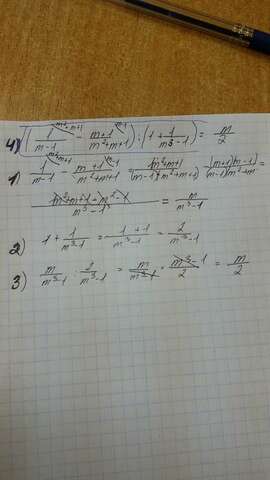 4) (1/(m-1) - (m+1)/(m²+m+1)) : (1 + 1/(m³-1)) = m/2
1) 1/(m-1) - (m+1)/(m²+m+1) = (m²+m+1)/((m-1)(m²+m+1)) - ((m+1)(m-1))/((m-1)(m²+m =
(m²+m+1-m²-1)/(m³-1) = m/(m³-1)
2) 1 + 1/(m³-1) = (1+1)/(m³-1) = 2/(m³-1)
3) m/(m³-1) : 2/(m³-1) = m/(m³-1) · (m³-1)/2 = m/2